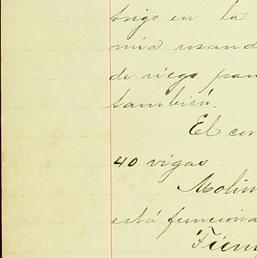 trigo en la
mía usand
de riego par
también.
El con
40 vigas
Molin
está funciona
Tien